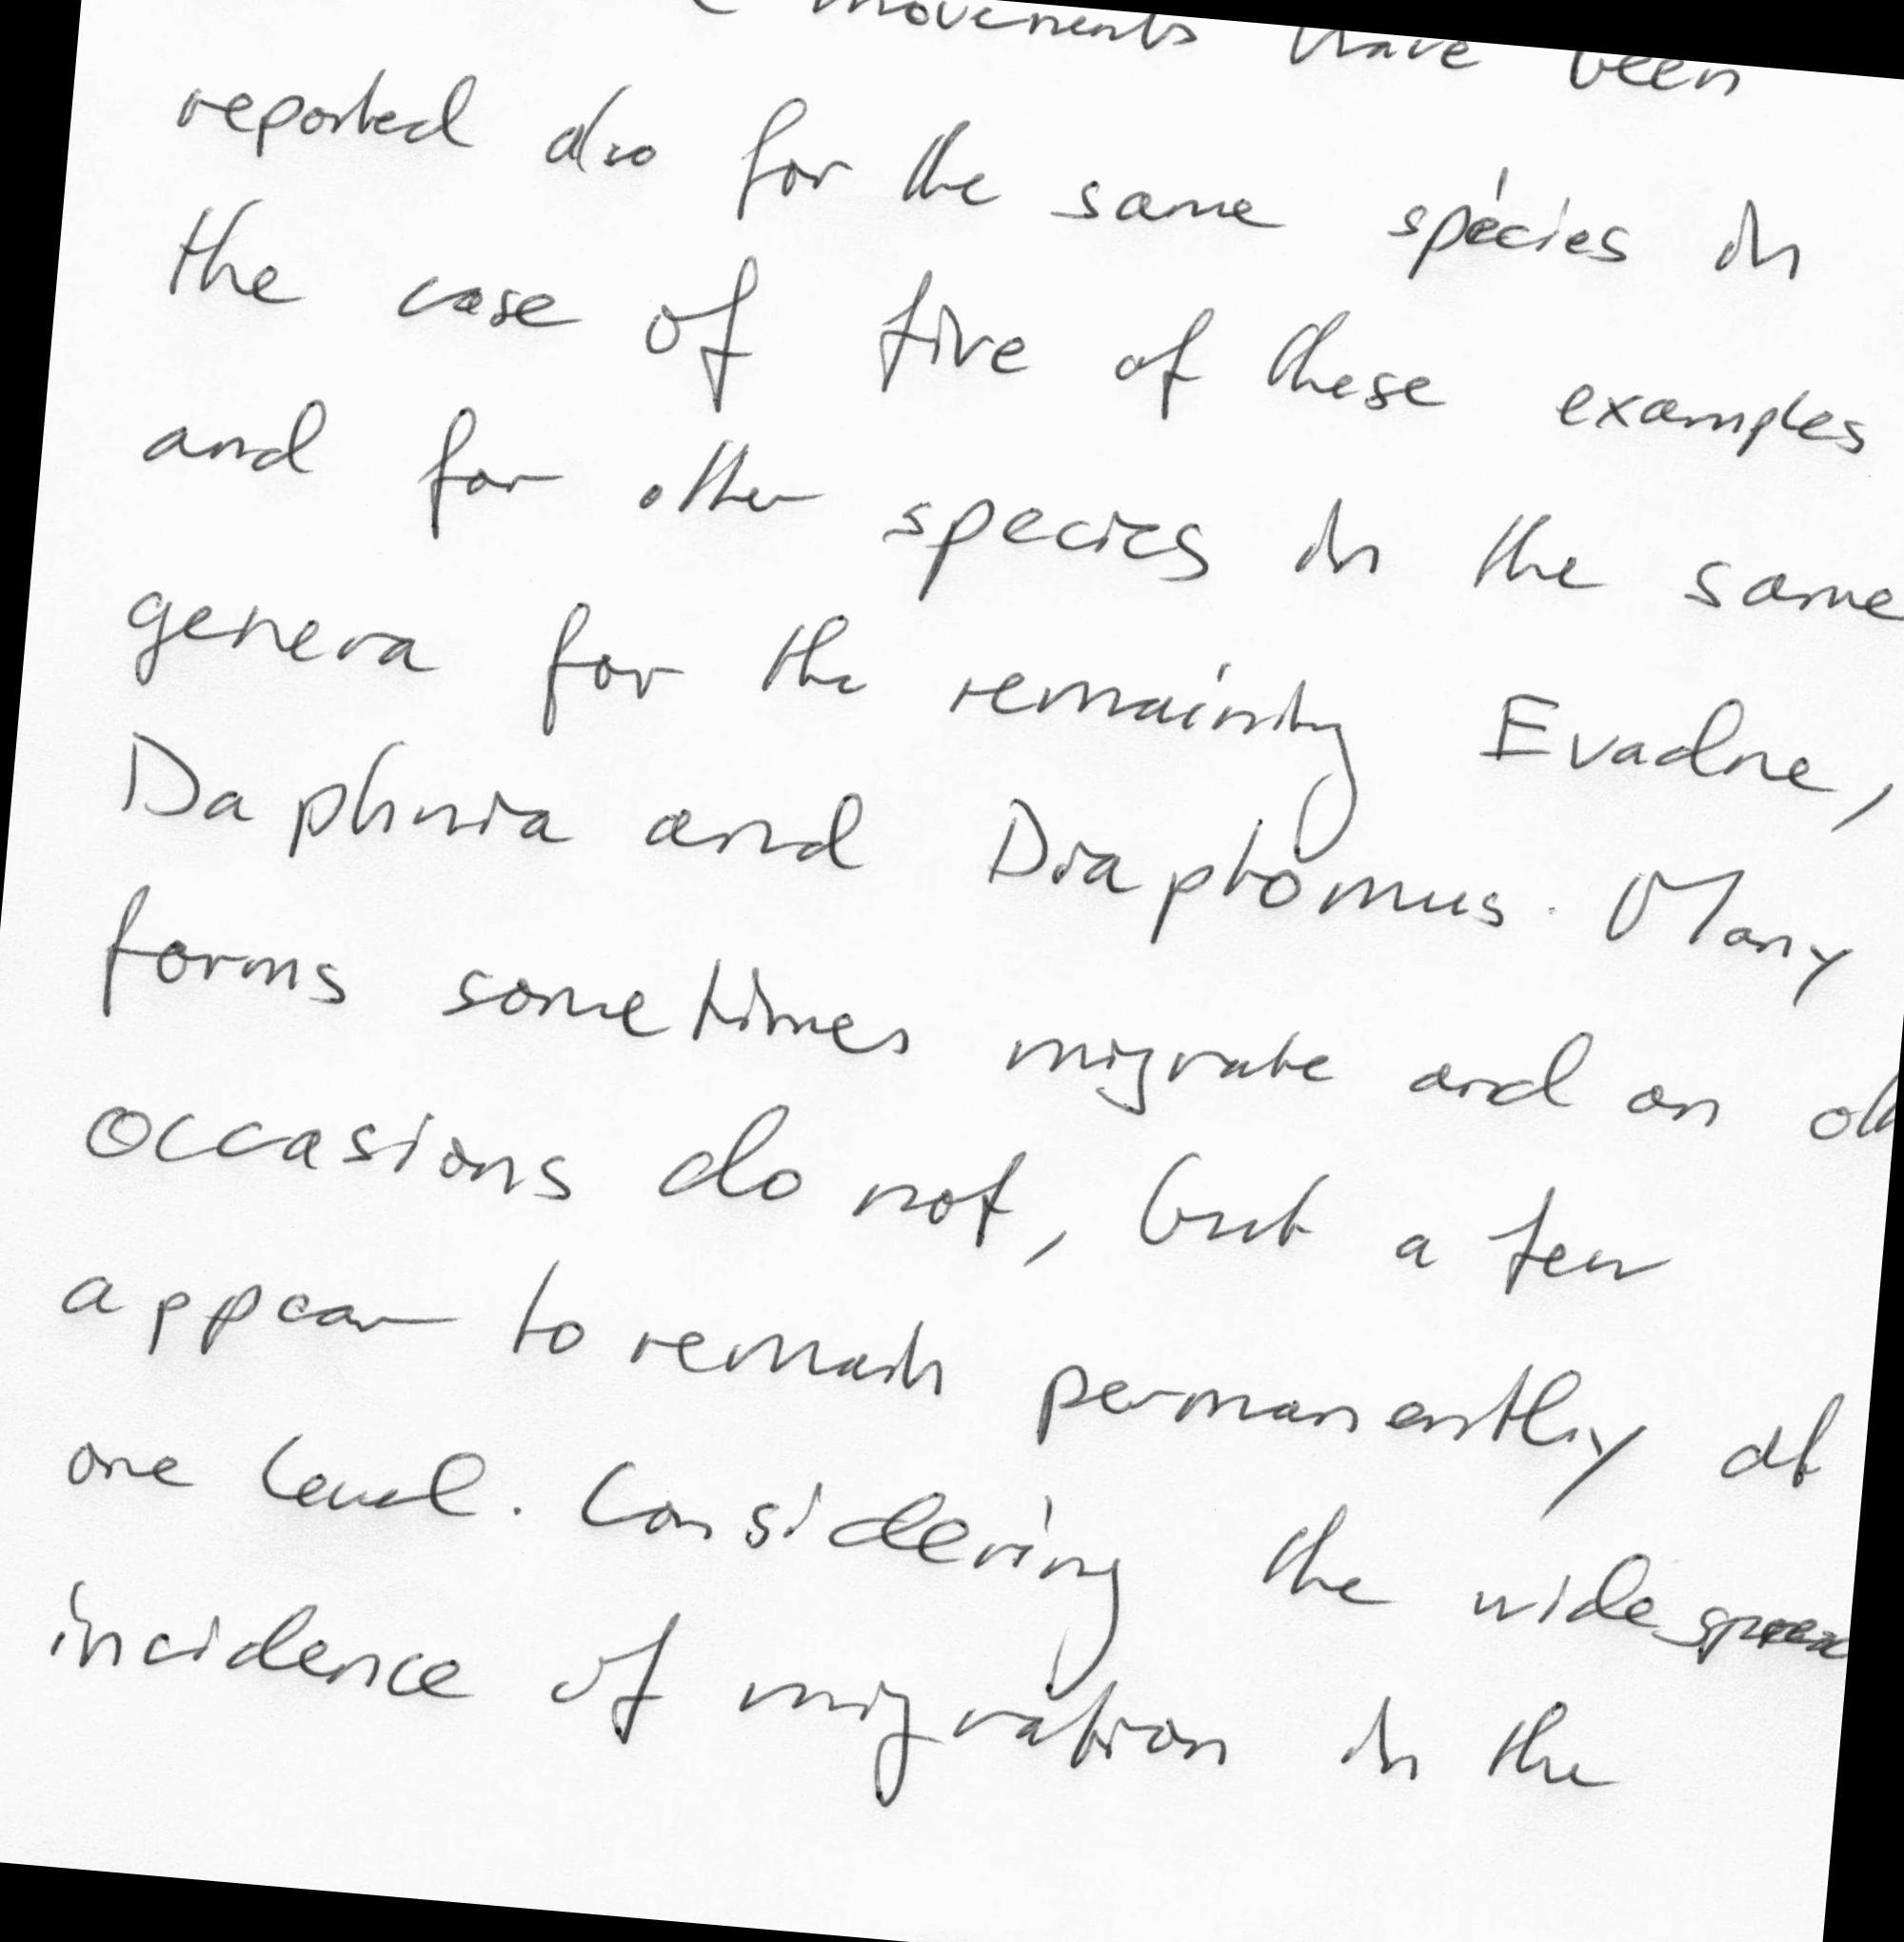 movements have been
reported also for the same species in
the case of five of these examples
and for other species in the same
genera for the remaining Evadne,
Daphnia and Diaptomus. Many
forms sometimes migrate and on
occasions do not, but a few
appear to remain permanently at
one level. Considering the widespread
incidence of migration in the